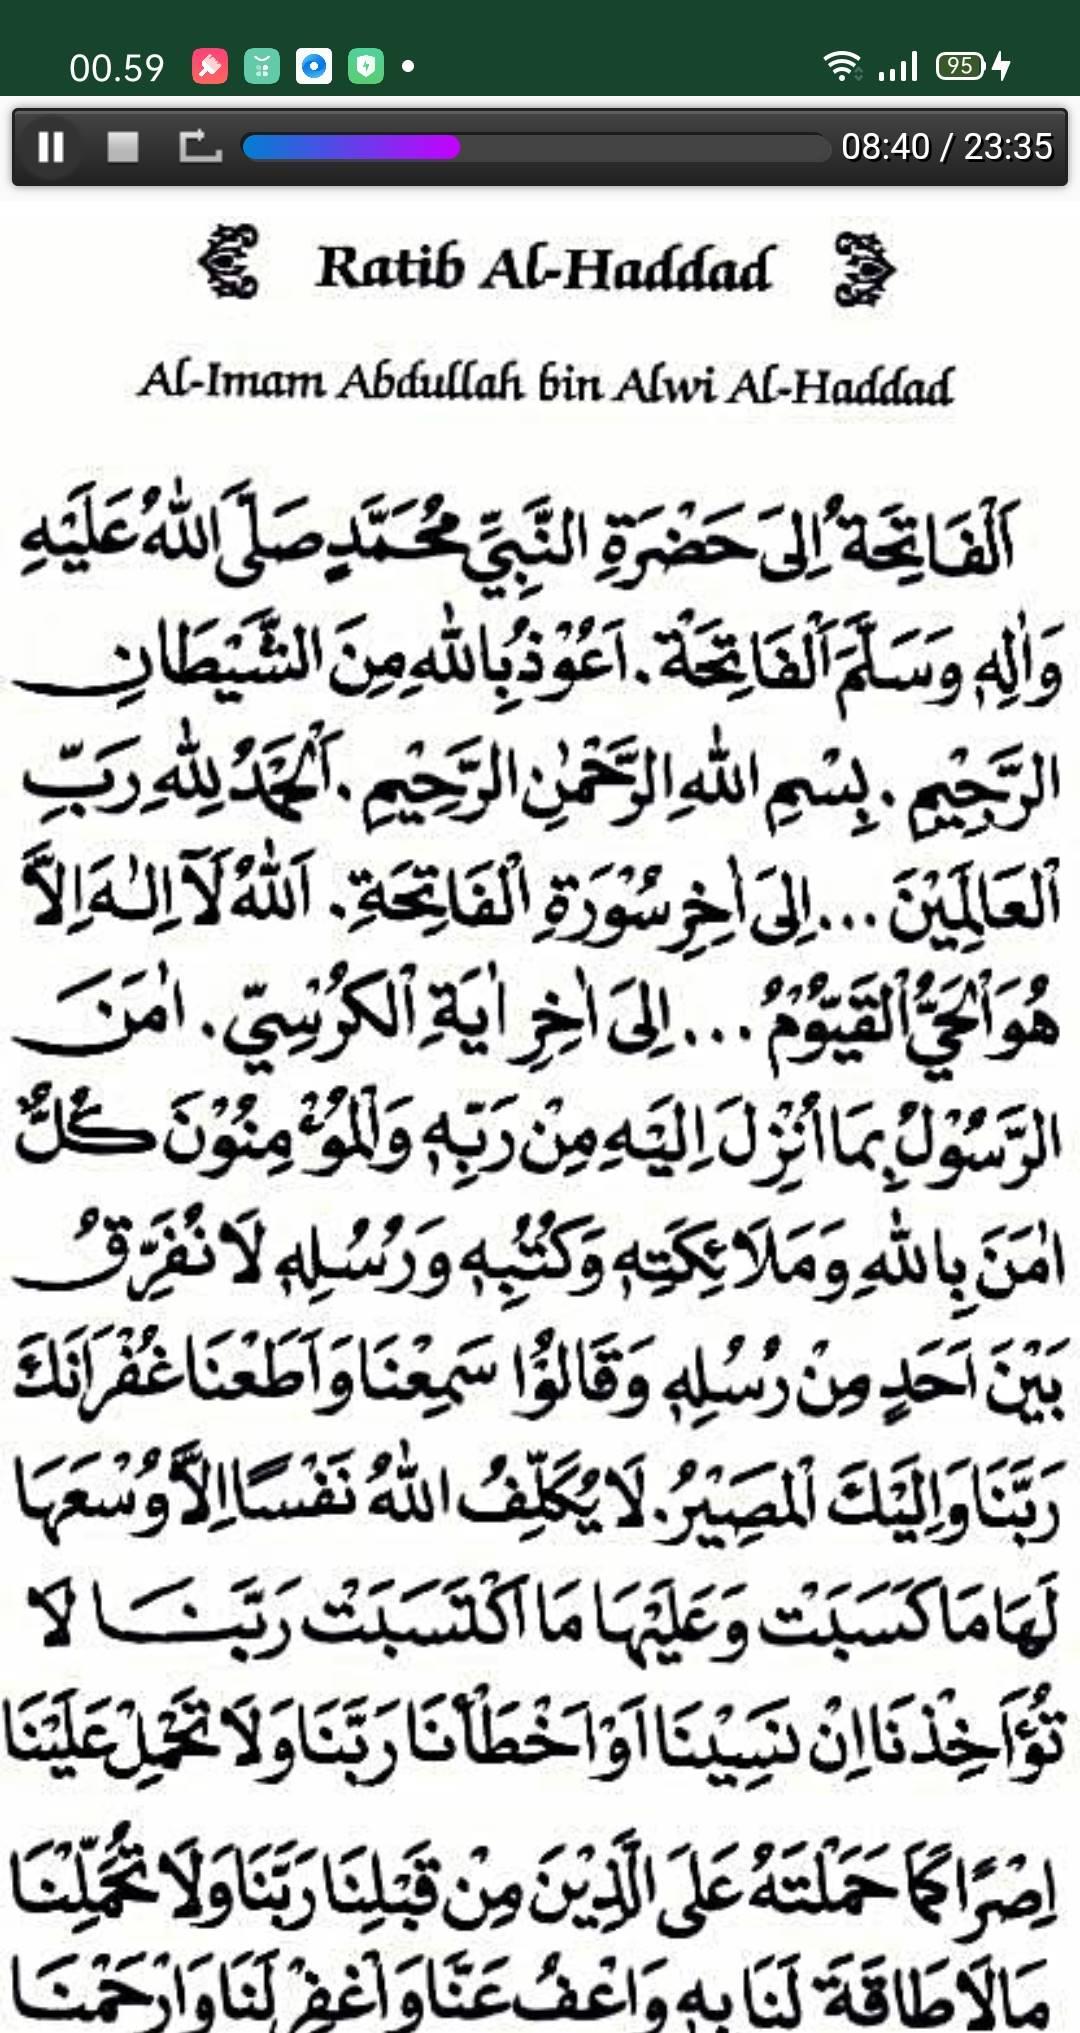 00.59
95
08:40 / 23:35
Ratib Al-Haddad
Al-Imam Abdullah bin Alwi Al-Haddad
اَلْفَاتِحَةُ اِلىَ حَضْرَةِ النَّبِيِّ مُحَمَّدٍ صَلَّى اللهُ عَلَيْهِ
وَاٰلِهٖ وَسَلَّمَ اَلْفَاتِحَةْ. اَعُوْذُ بِاللهِ مِنَ الشَّيْطَانِ
الرَّجِيْمِ. بِسْمِ اللهِ الرَّحْمٰنِ الرَّحِيْمِ. اَلْحَمْدُ لِلّٰهِ رَبِّ
الْعَالَمِيْنَ ... اِلىَ اٰخِرِ سُوْرَةِ الْفَاتِحَةِ. اَللهُ لَآ اِلٰهَ اِلاَّ
هُوَ الْحَيُّ الْقَيُّوْمُ ... اِلىَ اٰخِرِ اٰيَةِ الْكُرْسِيّ. اٰمَنَ
الرَّسُوْلُ بِمَا اُنْزِلَ اِلَيْهِ مِنْ رَبِّهٖ وَالْمُؤْمِنُوْنَ كُلٌّ
اٰمَنَ بِاللهِ وَمَلَائِكَتِهٖ وَكُتُبِهٖ وَرُسُلِهٖ لَا نُفَرِّقُ
بَيْنَ اَحَدٍ مِنْ رُسُلِهٖ وَقَالُوْا سَمِعْنَا وَاَطَعْنَا غُفْرَانَكَ
رَبَّنَا وَاِلَيْكَ الْمَصِيْرُ. لَا يُكَلِّفُ اللهُ نَفْسًا اِلاَّ وُسْعَهَا
لَهَا مَا كَسَبَتْ وَعَلَيْهَا مَا اكْتَسَبَتْ رَبَّنَا لَا
تُؤَاخِذْنَا اِنْ نَسِيْنَا اَوْ اَخْطَأْنَا رَبَّنَا وَلَا تَحْمِلْ عَلَيْنَا
اِصْرًا كَمَا حَمَلْتَهُ عَلىَ الَّذِيْنَ مِنْ قَبْلِنَا رَبَّنَا وَلَا تُحَمِّلْنَا
مَالَا طَاقَةَ لَنَا بِهٖ وَاعْفُ عَنَّا وَاغْفِرْ لَنَا وَارْحَمْنَا